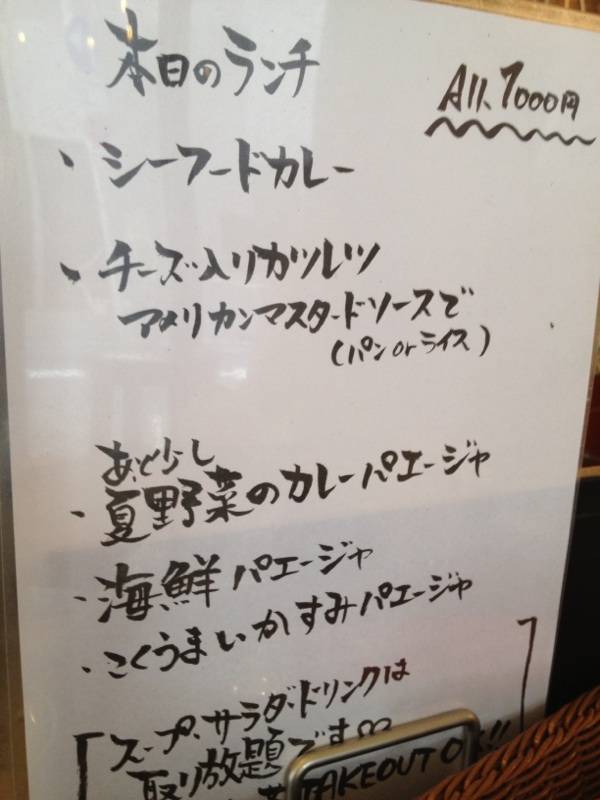 本日のランチ
All、1000円
・シーフードカレー
・チーズ入りカツレツ
アメリカンマスタードソースで
(パンorライス)
あと少し
・夏野菜のカレーパエージャ
・海鮮パエージャ
・こくうまいかすみパエージャ
スープ、サラダ・ドリンクは
取り放題です♡
TAKEOUT OK!!